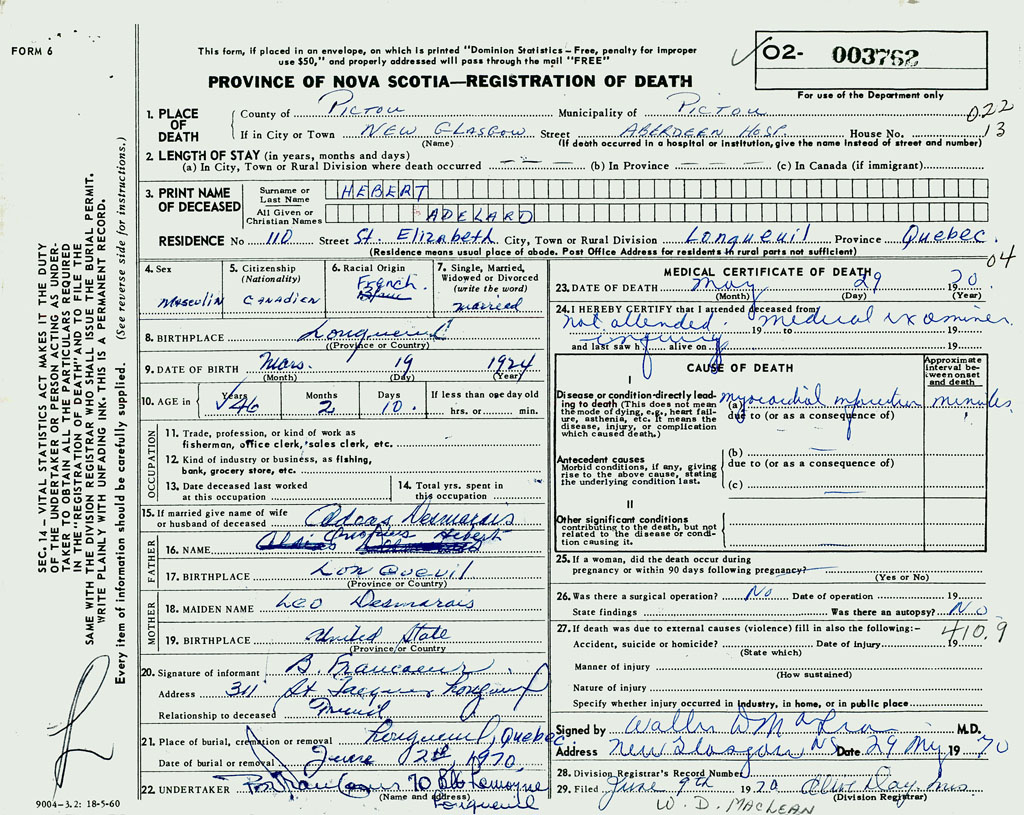 FORM 6
This form, if placed in an envelope, on which is printed "Dominion Statistics – Free, penalty for improper
use $50," and properly addressed will pass through the mail "FREE"
PROVINCE OF NOVA SCOTIA—REGISTRATION OF DEATH
02- 003762
For use of the Department only
022
13
1. PLACE OF DEATH
County of Pictou Municipality of Pictou
If in City or Town New Glasgow Street Aberdeen Hosp. House No.
(Name) (If death occurred in a hospital or institution, give the name instead of street and number)
2. LENGTH OF STAY (in years, months and days)
(a) In City, Town or Rural Division where death occurred (b) In Province (c) In Canada (if immigrant)
3. PRINT NAME OF DECEASED
Surname or Last Name HEBERT
All Given or Christian Names ADELARD
RESIDENCE No 110 Street St. Elizabeth City, Town or Rural Division Longueuil Province Quebec.
(Residence means usual place of abode. Post Office Address for residents in rural parts not sufficient)
04
4. Sex
Masculin
5. Citizenship
(Nationality)
Canadien
6. Racial Origin
French.
7. Single, Married,
Widowed or Divorced
(write the word)
married
8. BIRTHPLACE Longueuil
(Province or Country)
9. DATE OF BIRTH Mars. 19 1924
(Month) (Day) (Year)
10. AGE in
Years Months Days If less than one day old
46 2 10. hrs. or min.
OCCUPATION
11. Trade, profession, or kind of work as
fisherman, office clerk, sales clerk, etc.
12. Kind of industry or business, as fishing,
bank, grocery store, etc.
13. Date deceased last worked
at this occupation
14. Total yrs. spent in
this occupation
15. If married give name of wife
or husband of deceased Desmarais
FATHER
16. NAME Hebert
17. BIRTHPLACE Lon Queuil
(Province or Country)
MOTHER
18. MAIDEN NAME Leo Desmarais
19. BIRTHPLACE United State
(Province or Country)
20. Signature of informant B. Francoeur
Address 311 St Jacques Longueuil
Relationship to deceased
21. Place of burial, cremation or removal Longueuil, Quebec
Date of burial or removal June 2nd, 1970.
22. UNDERTAKER 70 Lemoyne
(Name and address)
Longueuil
9004-3.2: 18-5-60
MEDICAL CERTIFICATE OF DEATH
23. DATE OF DEATH May 29 1970.
(Month) (Day) (Year)
24. I HEREBY CERTIFY that I attended deceased from
not attended. medical examiner
19 to 19
inquiry
and last saw h alive on 19
CAUSE OF DEATH
Approximate
interval be-
tween onset
and death
I
Disease or condition directly lead-
ing to death (This does not mean
the mode of dying, e.g., heart fail-
ure, asthenia, etc. It means the
disease, injury, or complication
which caused death.)
(a) myocardial infarction minutes
due to (or as a consequence of)
Antecedent causes
Morbid conditions, if any, giving
rise to the above cause, stating
the underlying condition last.
(b)
due to (or as a consequence of)
(c)
II
Other significant conditions
contributing to the death, but not
related to the disease or condi-
tion causing it.
25. If a woman, did the death occur during
pregnancy or within 90 days following pregnancy?
(Yes or No)
26. Was there a surgical operation? No Date of operation 19
State findings Was there an autopsy? No
27. If death was due to external causes (violence) fill in also the following:-
410.9
Accident, suicide or homicide? Date of injury 19
(State which)
Manner of injury
(How sustained)
Nature of injury
Specify whether injury occurred in industry, in home, or in public place
Signed by M.D.
Address New Glasgow, NS Date 29 May 1970
28. Division Registrar's Record Number
29. Filed June 9th 1970 Olive Day
(Division Registrar)
W. D. MacLean
SEC. 14 – VITAL STATISTICS ACT MAKES IT THE DUTY
OF THE UNDERTAKER OR PERSON ACTING AS UNDER-
TAKER TO OBTAIN ALL THE PARTICULARS REQUIRED
IN THE "REGISTRATION OF DEATH" AND TO FILE THE
SAME WITH THE DIVISION REGISTRAR WHO SHALL ISSUE THE BURIAL PERMIT.
WRITE PLAINLY WITH UNFADING INK. THIS IS A PERMANENT RECORD.
Every item of information should be carefully supplied. (See reverse side for instructions.)